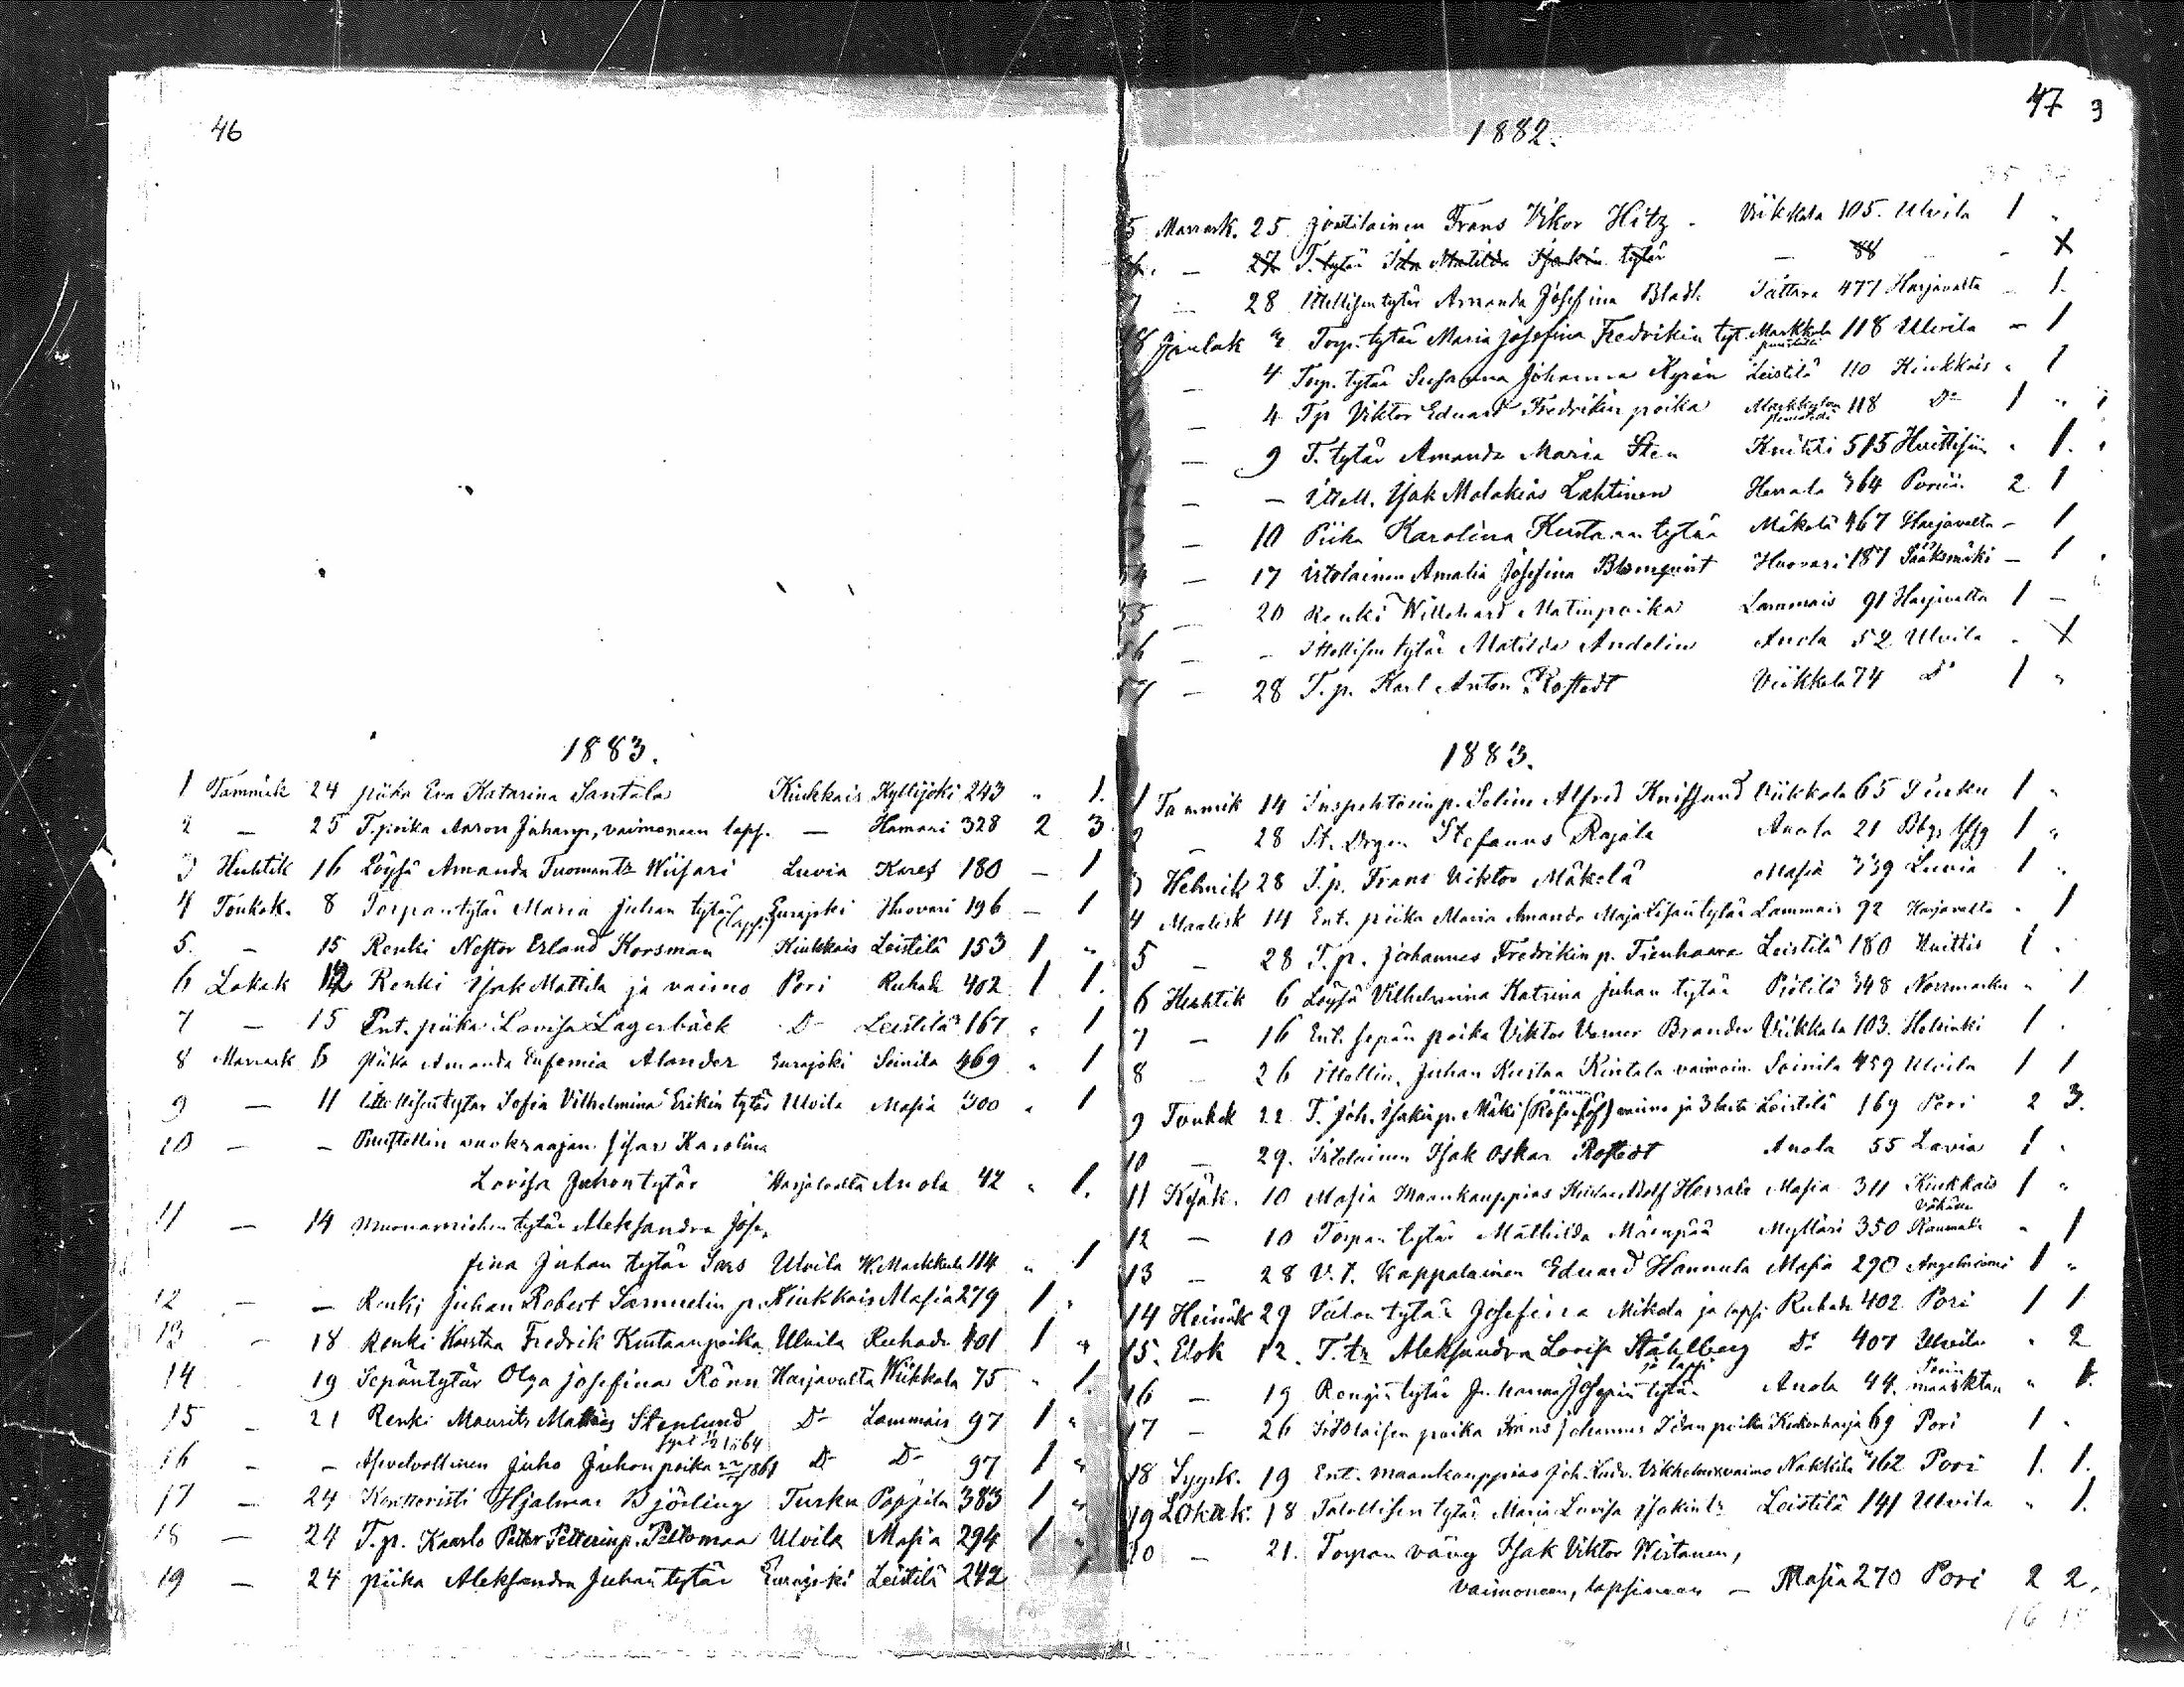 46
1883.
1 Tammik 24 piika Eva Katarina Santala Kiukkais Kyllijoki 243 " 1.
2 — 25 T.poika Aaron Juhanp, vaimoneen laps. — Hamari 328 2 3
3 Huhtik 16 Löysä Amanda Tuomantr Wiisari Luvia Kares 180 — 1
4 Toukok. 8 Torpantytär Maria Juhan tytär (laps.) Eurajoki Huovari 196 — 1
5. – 15 Renki Nestor Erland Korsman Kiukkais Leistilä 153 1 "
6 Lokak 12 Renki Isak Mattila ja vaimo Pori Ruhade 402 1 1.
7 — 15 Ent. piika Lovisa Lagerbäck D:o Leistilä 167 " 1
8 Marrask 6 piika Amanda Eufemia Alander Eurajoki Soinila 469 " 1
9 — 11 Itellisentytär Sofia Vilhelmina Erikin tytär Ulvila Masia 300 " 1
10 — – Puustellin vuokraajan sisar Karolina
Lovisa Juhontytär Harjavalta Anola 42 " 1.
11 — 14 Muonamiehen tytär Aleksandra Jose-
fina Juhan tytär Sars Ulvila W.Markkula 114 " 1
12 – — Renki Juhan Robert Samuelin p. Kiukkais Masia 279 1 "
13 – 18 Renki Kustaa Fredrik Kustaanpoika Ulvila Ruhade 401 1 "
14 – 19 Sepäntytär Olga Josefina Rönn Harjavalta Wiikkala 75 " 1.
15 – 21 Renki Maurits Matias Stenlund D:o Lammais 97 1 "
16 – – Asevelvollinen Juho Juhonpoika 1861 D:o D:o 97 1 "
17 – 24 Konttoristi Hjalmar Björling Turku Pappila 383 1 "
18 — 24 T.p. Kaarlo Petter Petterinp. Peltomaa Ulvila Masia 294 1 "
19 — 24 piika Aleksandra Juhan tytär Eurajoki Leistilä 242 1
47 3
1882.
5 Marrask. 25 Frans Vikor Hitz – Viikkala 105. Ulvila 1 "
— 27 T. tytär Ida Matilda Isakin tytär — 88 –
7 — 28 Itellisen tytär Amanda Josefina Blad Tattara 477 Harjavalta – 1.
8 Joulak Torp. tytär Maria Josefina Fredrikin tyt. Markkula puustelli 118 Ulvila – 1
— 4 Torp. tytär Susanna Johanna Kyrän Leistilä 110 Kiukkais " 1
— 4 Tp Viktor Eduard Fredrikin poika Markkulan puustelli 118 D:o 1 "
— 9 T. tytär Amanda Maria Sten Knihti 515 Huittisiin " 1.
— – Itell. Isak Malakias Lahtinen Herrala 364 Poriin 2 1
— 10 Piika Karolina Kustaan tytär Mäkelä 467 Harjavalta – 1
— 17 Itolainen Amalia Josefina Blomqvist Huovari 187 Sääksmäki – 1
55 — 20 Renki Willehard Matinpoika Lammais 91 Harjavalta 1 –
56 — – Itellisen tytär Matilda Andelin Anola 52 Ulvila "
57 – 28 T.p. Karl Anton Rostedt Viikkala 74 D:o 1 "
1883.
1 Tammik 14 Inspehtorin p. Selim Alfred Viikkala 65 Turku 1 "
2 – 28 Stefanus Rajala Anola 21 1 "
3 Helmik 28 T.p. Frans Viktor Mäkelä Masia 339 Luvia 1 "
4 Maalisk 14 Ent. piika Maria Amanda Maja Lisan tytär Lammais 92 Harjavalta " 1
5 – 28 T.p. Johannes Fredrikin p. Tienhaara Leistilä 180 Huittis 1 "
6 Huhtik 6 Löysä Vilhelmina Katrina Juhan tytär Pyölilä 348 Norrmarku " 1
7 – 16 Ent. sepän poika Viktor Verner Brander Viikkala 103. Helsinki 1 "
8 – 26 Itellin. Juhan Kustaa Kintala vaimoin. Soinila 459 Ulvila 1 1
9 Toukok 22 T. Joh. Isakin p. Mäki vaimo ja 3 lasta Leistilä 169 Pori 2 3.
10 – 29. Itolainen Isak Oskar Rostedt Anola 55 Lavia 1 "
11 Kesäk. 10 Masia Maankauppias Adolf Herrala Masia 311 Kiukkais 1 "
12 – 10 Torpan tytär Mathilda Mäenpää Mylläri 350 Raumalle " 1
13 – 28 V.t. Kappalainen Eduard Hannula Masia 290 Angelniemi 1 "
14 Heinäk 29 Talon tytär Josefina Mikola ja lapsi Ruhade 402 Pori 1 1
15. Elok 12. T. tr Aleksandra Lovisa Ståhlberg ja lapsi D:o 407 Ulvila " 2
16 – 19 Rengin tytär Johanna Josepin tytär Anola 44. Porin maaskta " 1.
17 – 26 Itolaisen poika Frans Johannes Idan poika Kukonharja 69 Pori 1 "
18 Syysk. 19 Ent. maankauppias Joh. vaimo Nakkila 362 Pori 1. 1.
19 Lokak. 18 Talollisen tytär Maria Lovisa Isakintr Leistilä 141 Ulvila " 1.
20 – 21. Torpan vävy Isak Viktor Wirtanen,
vaimoneen, lapsineen — Masia 270 Pori 2 2.